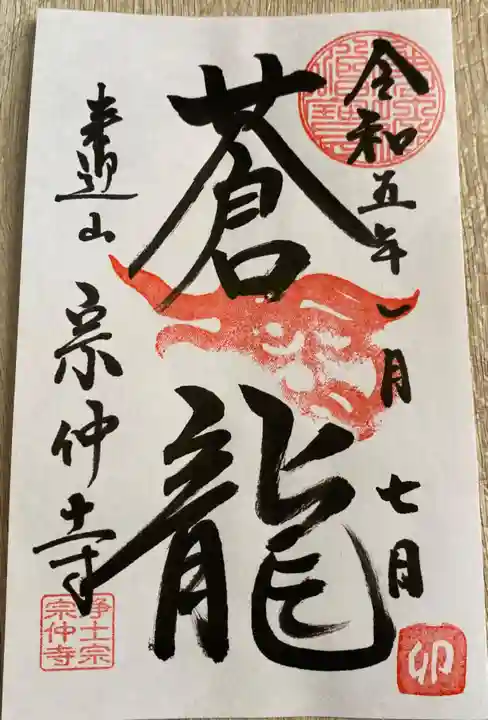 令和五年一月七月
卯
蒼龍
来迎山 宗仲寺
浄土宗
宗仲寺